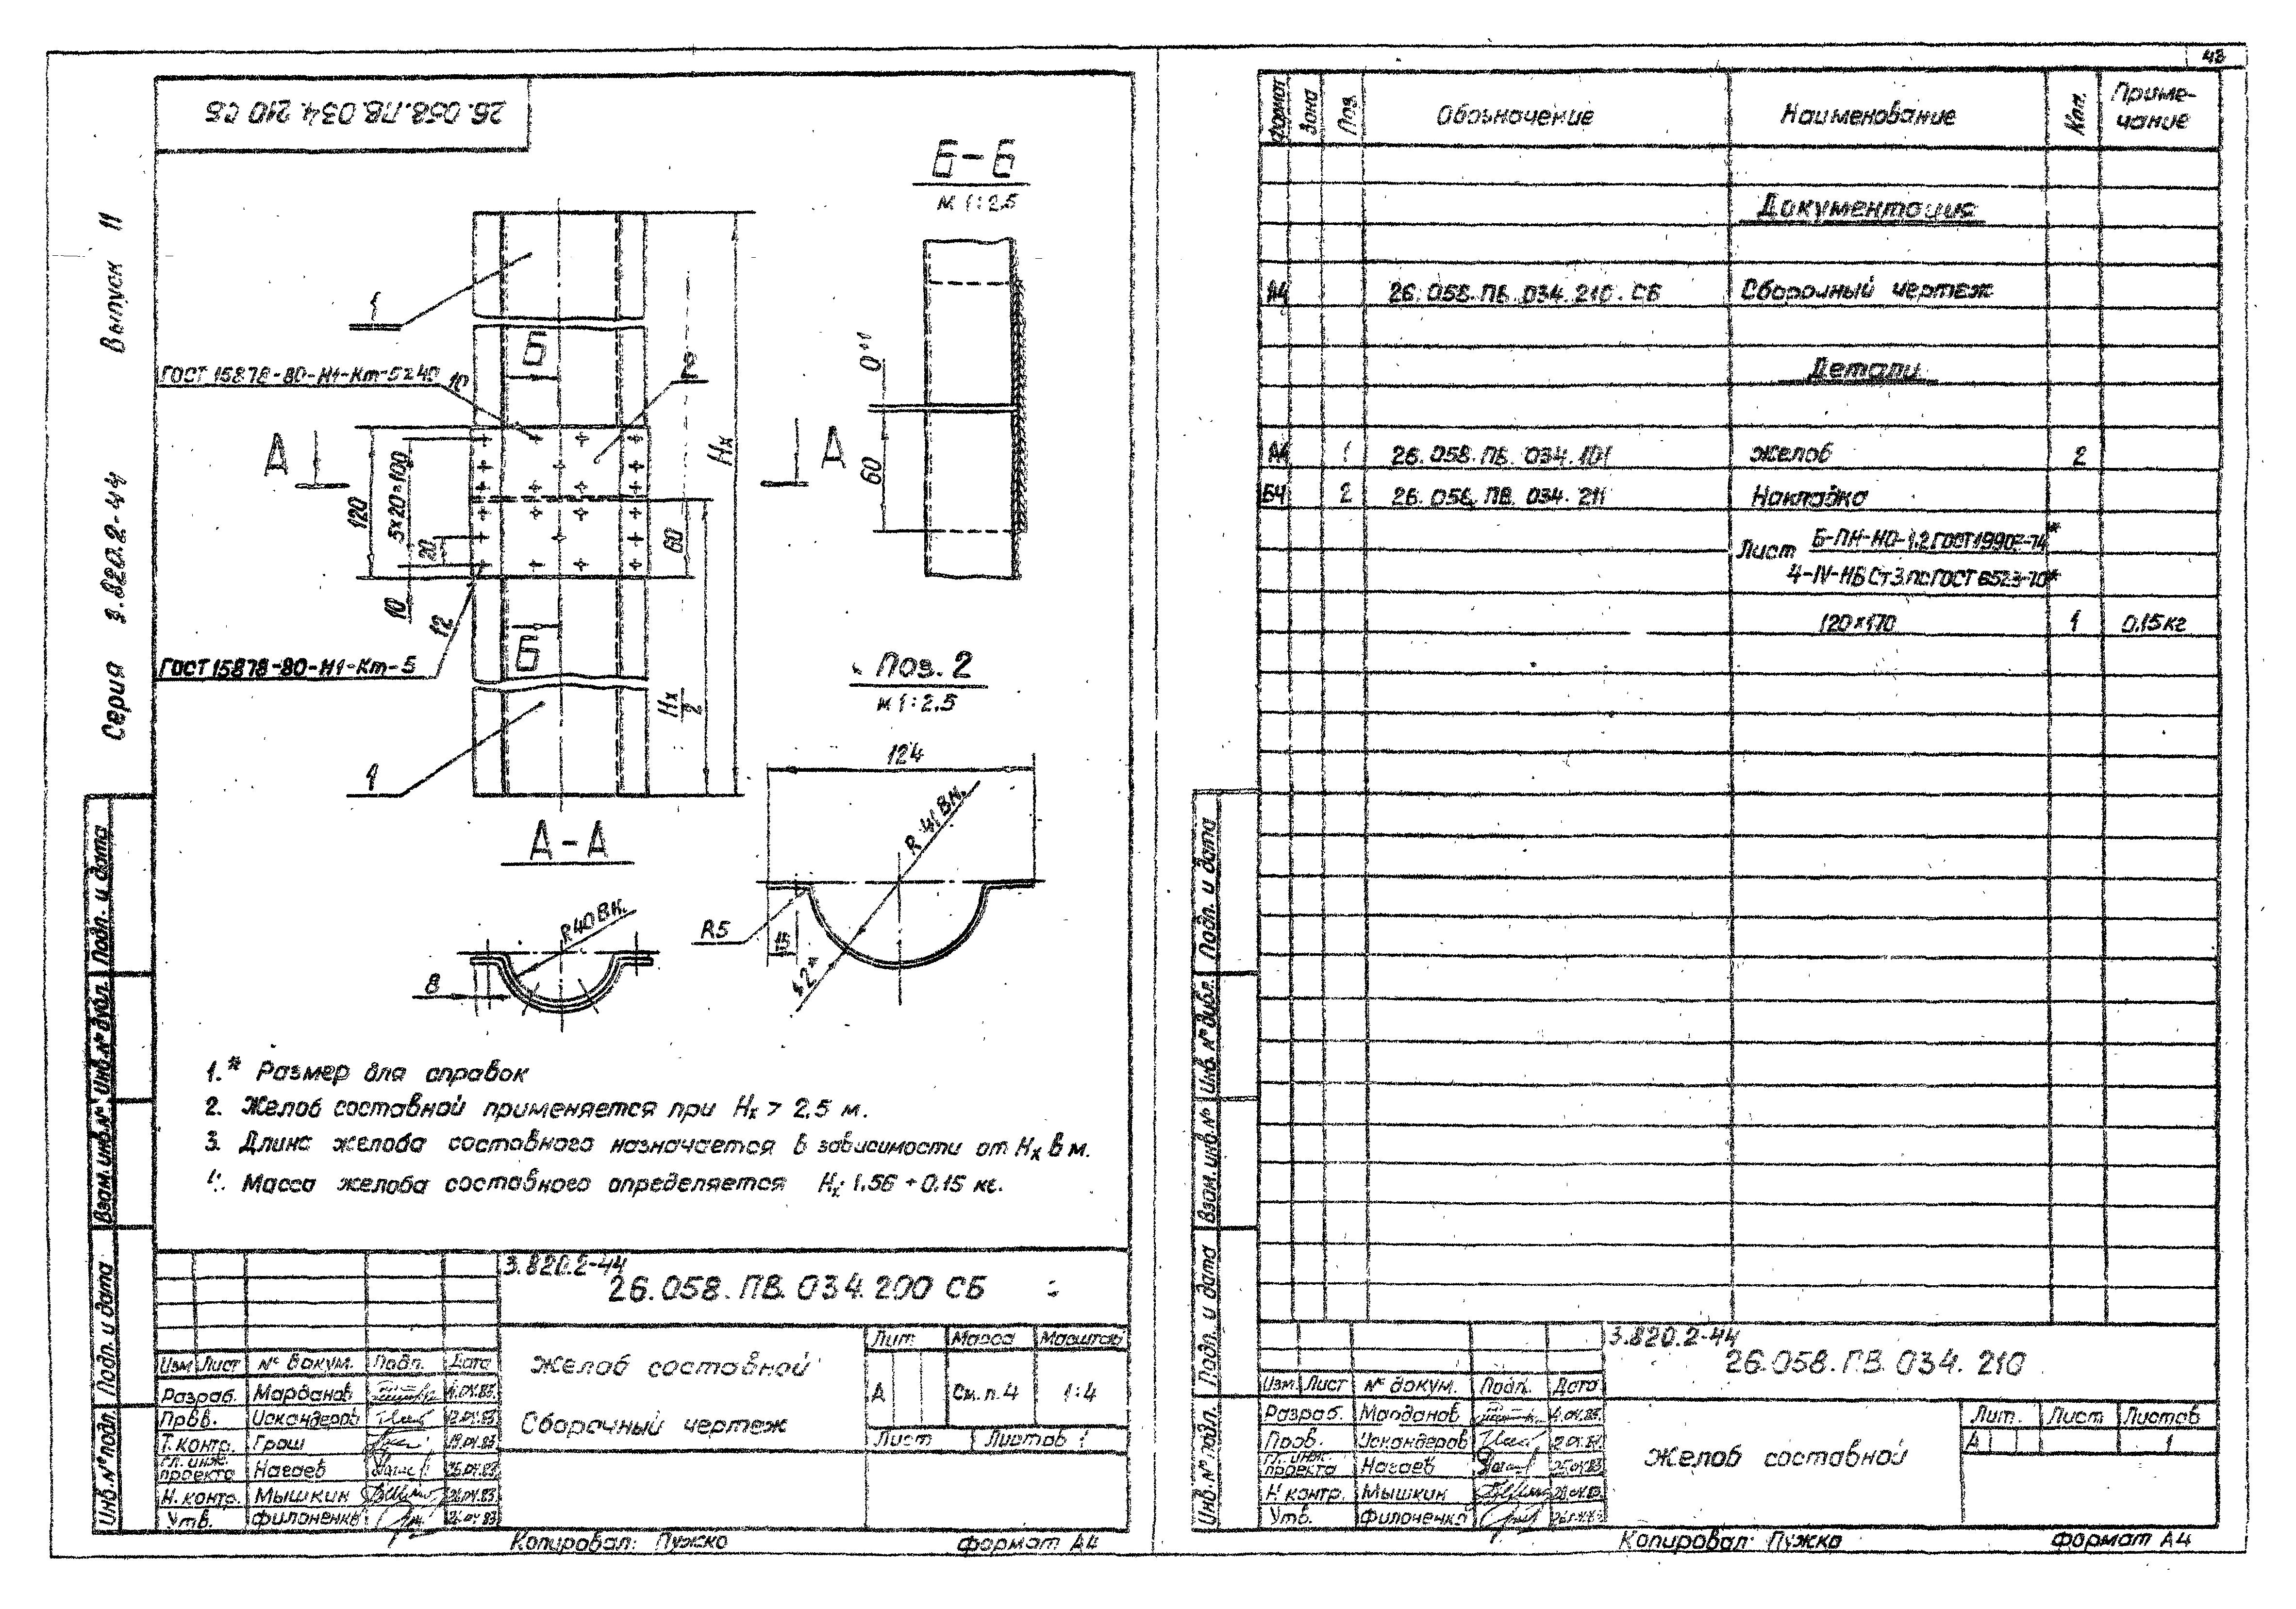 48
26.058.ПВ.034.210 СБ
Серия 3.820.2-44 Выпуск 11
Б-Б
М 1:2,5
1
Б
ГОСТ 15878-80-Н1-Кт-5х40
10
2
Hx
А
А
120
5×20=100
20
10
60
12
0⁺¹
60
Б
ГОСТ 15878-80-Н1-Кт-5
Hx/2
1
Поз. 2
М 1:2,5
124
R 41 Вн.
R5
15
А-А
R40 Вн.
8
1.* Размер для справок
2. Желоб составной применяется при Hx > 2,5 м.
3. Длина желоба составного назначается в зависимости от Hx в м.
4. Масса желоба составного определяется Hx·1,56 + 0,15 кг.
3.820.2-44
26.058.ПВ.034.200 СБ
Желоб составной
Сборочный чертеж
Лит Масса Масштаб
А См. п. 4 1:4
Лист Листов 1
Изм Лист № докум. Подп. Дата
Разраб. Марданов
Пров. Искандеров
Т. контр. Граш
Гл. инж. проекта Нагаев 25.04.83
Н. контр. Мышкин 26.04.83
Утв. Филоненко 26.04.83
Копировал: Пужко
формат А4
Инв. № подл. Подп. и дата Взам. инв. № Инв. № дубл. Подп. и дата
Формат Зона Поз. Обозначение Наименование Кол. Примечание
Документация
А4 26.058.ПВ.034.210.СБ Сборочный чертеж
Детали
А4 1 26.058.ПВ.034.101 Желоб 2
БЧ 2 26.058.ПВ.034.211 Накладка
Лист Б-ПН-НО-1,2 ГОСТ 19903-74*
4-IV-НБ Ст 3 пс ГОСТ 16523-70*
120×170 1 0,15 кг
3.820.2-44
26.058.ПВ.034.210
Изм Лист № докум. Подп. Дата
Разраб. Марданов
Пров. Искандеров
Гл. инж. проекта Нагаев 25.04.83
Н контр. Мышкин
Утв. Филоненко
Желоб составной
Лит. Лист Листов
А 1
Копировал: Пужко
формат А4
Инв. № подл. Подп. и дата Взам. инв. № Инв. № дубл. Подп. и дата